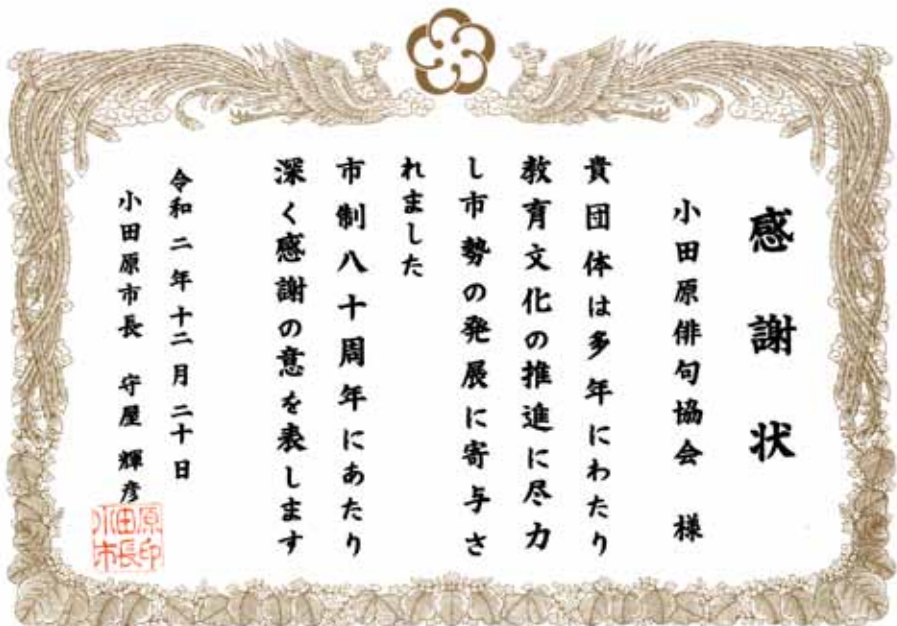 感謝状
小田原俳句協会 様
貴団体は多年にわたり
教育文化の推進に尽力
し市勢の発展に寄与さ
れました
市制八十周年にあたり
深く感謝の意を表します
令和二年十二月二十日
小田原市長 守屋 輝彦
小田原市長印